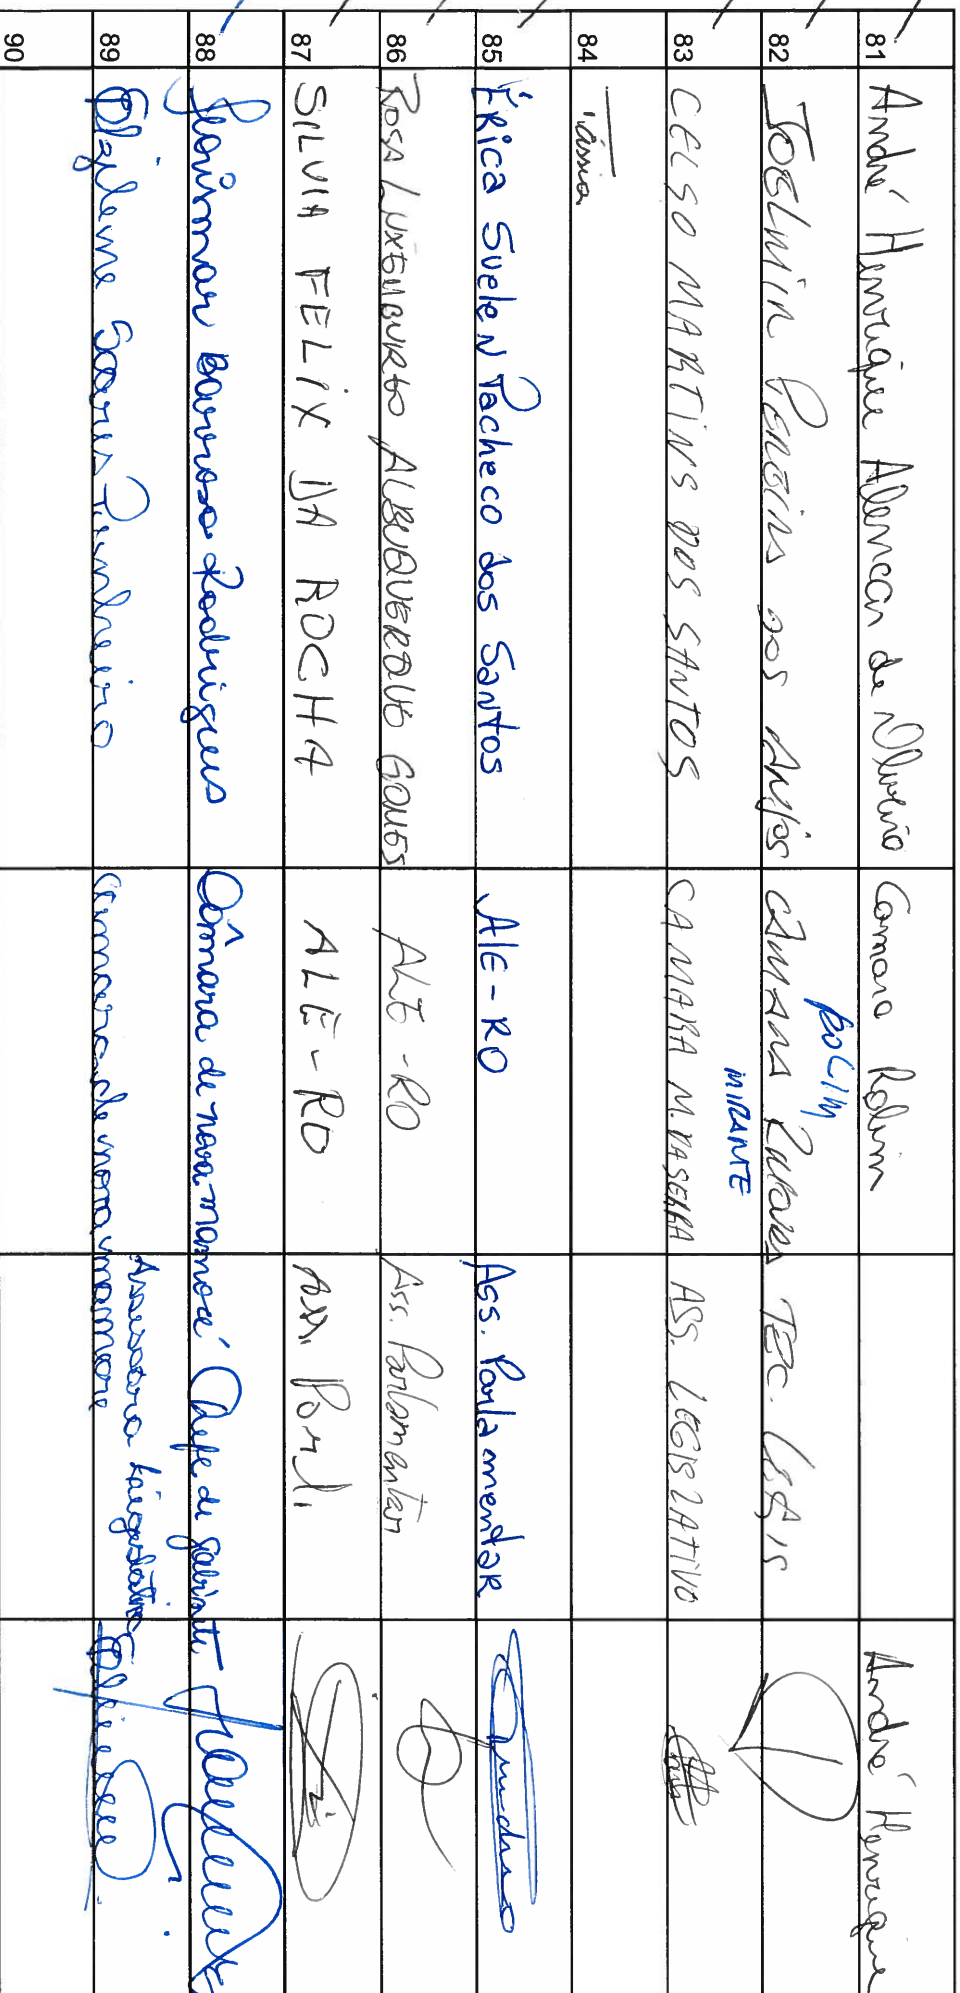 81 André Henrique Alencar de Oliveira Camara Rolim André Henrique
82 JOELMIR PEREIRA DOS ANJOS CÂMARA ROLIM TEC. LEGIS
83 CELSO MARTINS DOS SANTOS CAMARA M. DA SERRA MIRANTE ASS. LEGISLATIVO
84 Tássia
85 Érica Suelen Pacheco dos Santos ALE-RO Ass. Parlamentar
86 Rosa Luxemburgo ALBUQUERQUE GOMES ALE-RO Ass. Parlamentar
87 SILVIA FELIX DA ROCHA ALE-RO Ass. Parl.
88 Barroso Rodrigues Câmara de nova mamoré Chefe de gabinete
89 Soares Pinheiro camara de nova mamore Assessora
90